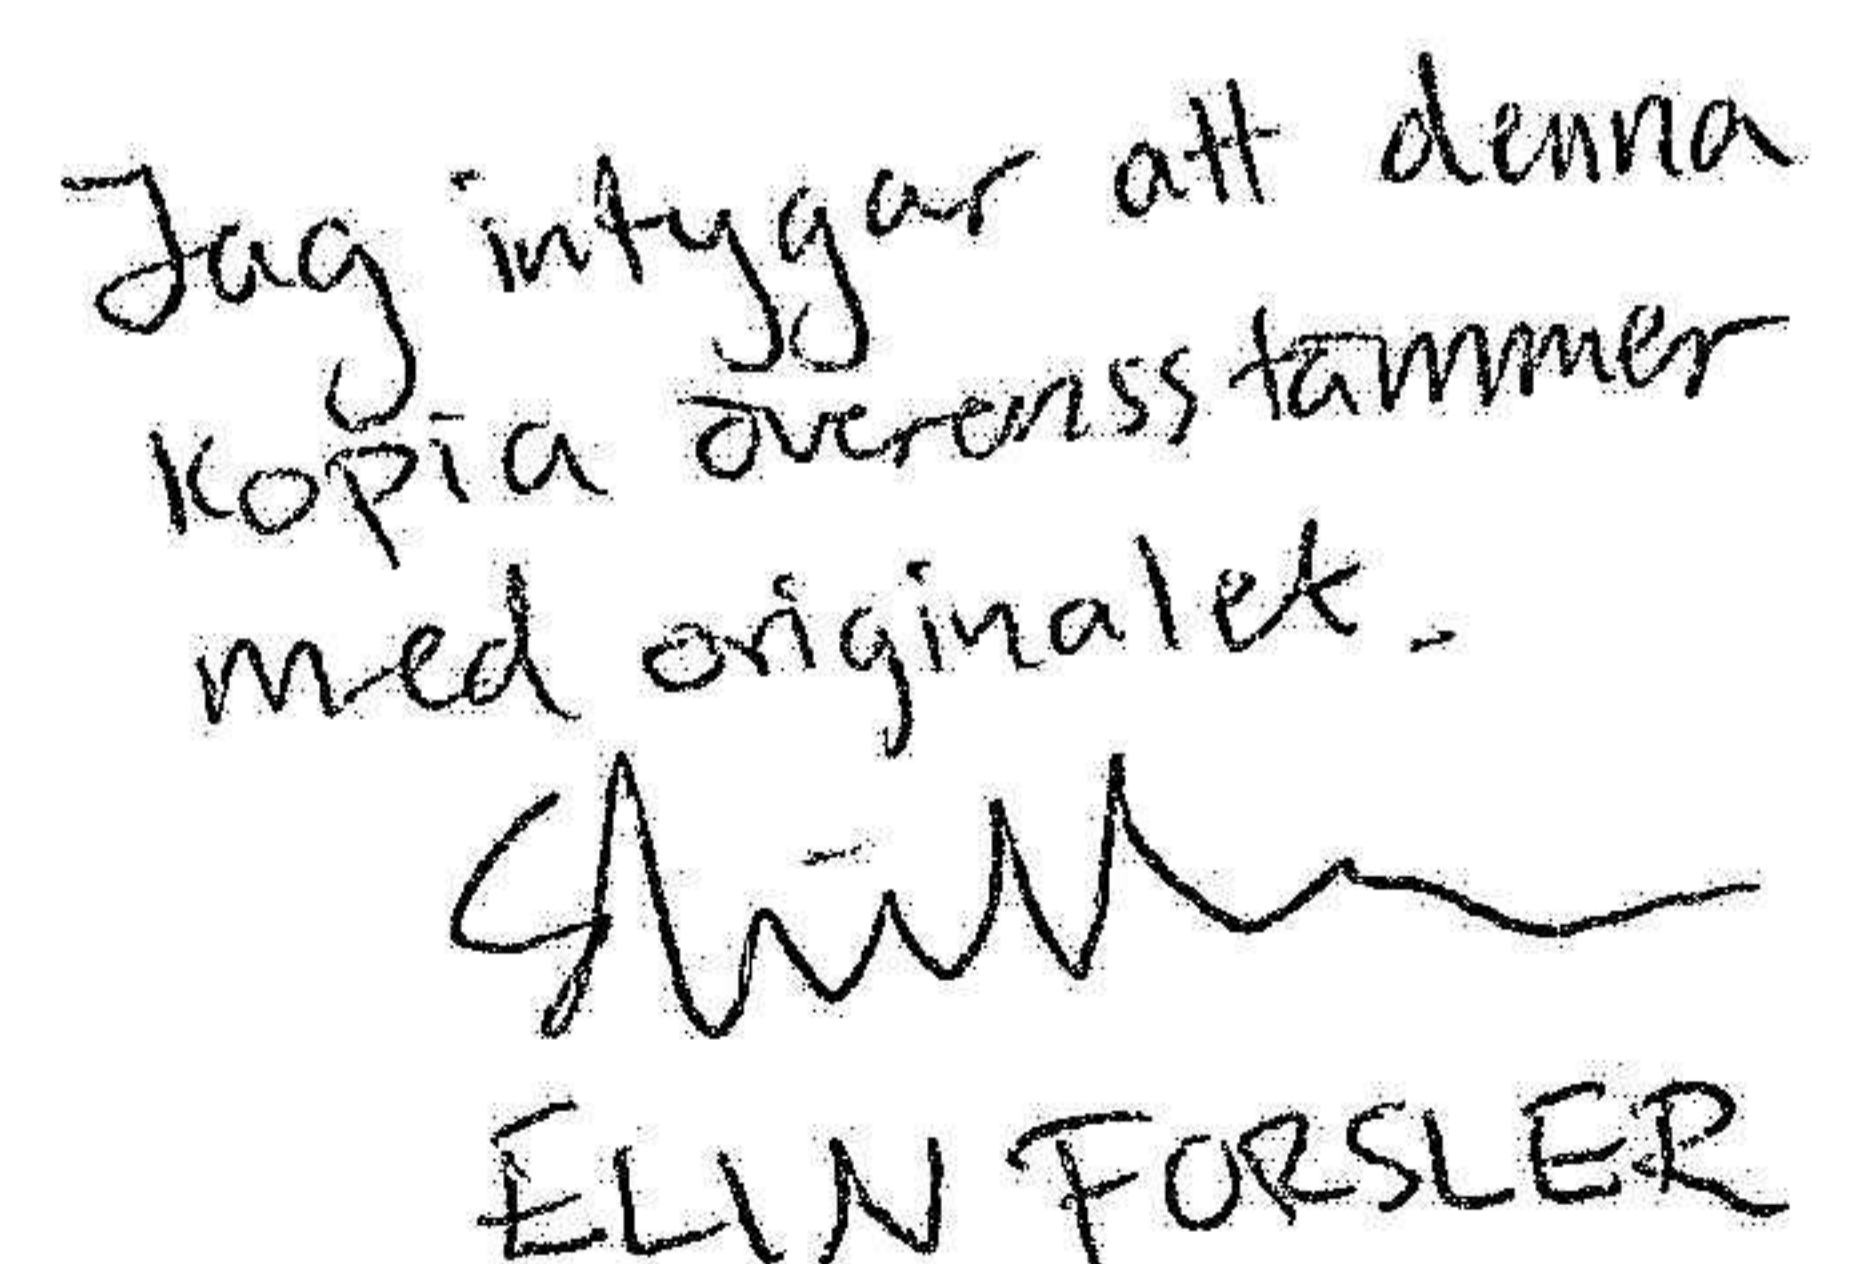 Jag intygar att denna
kopia överensstämmer
med originalet.
ELIN FORSLER